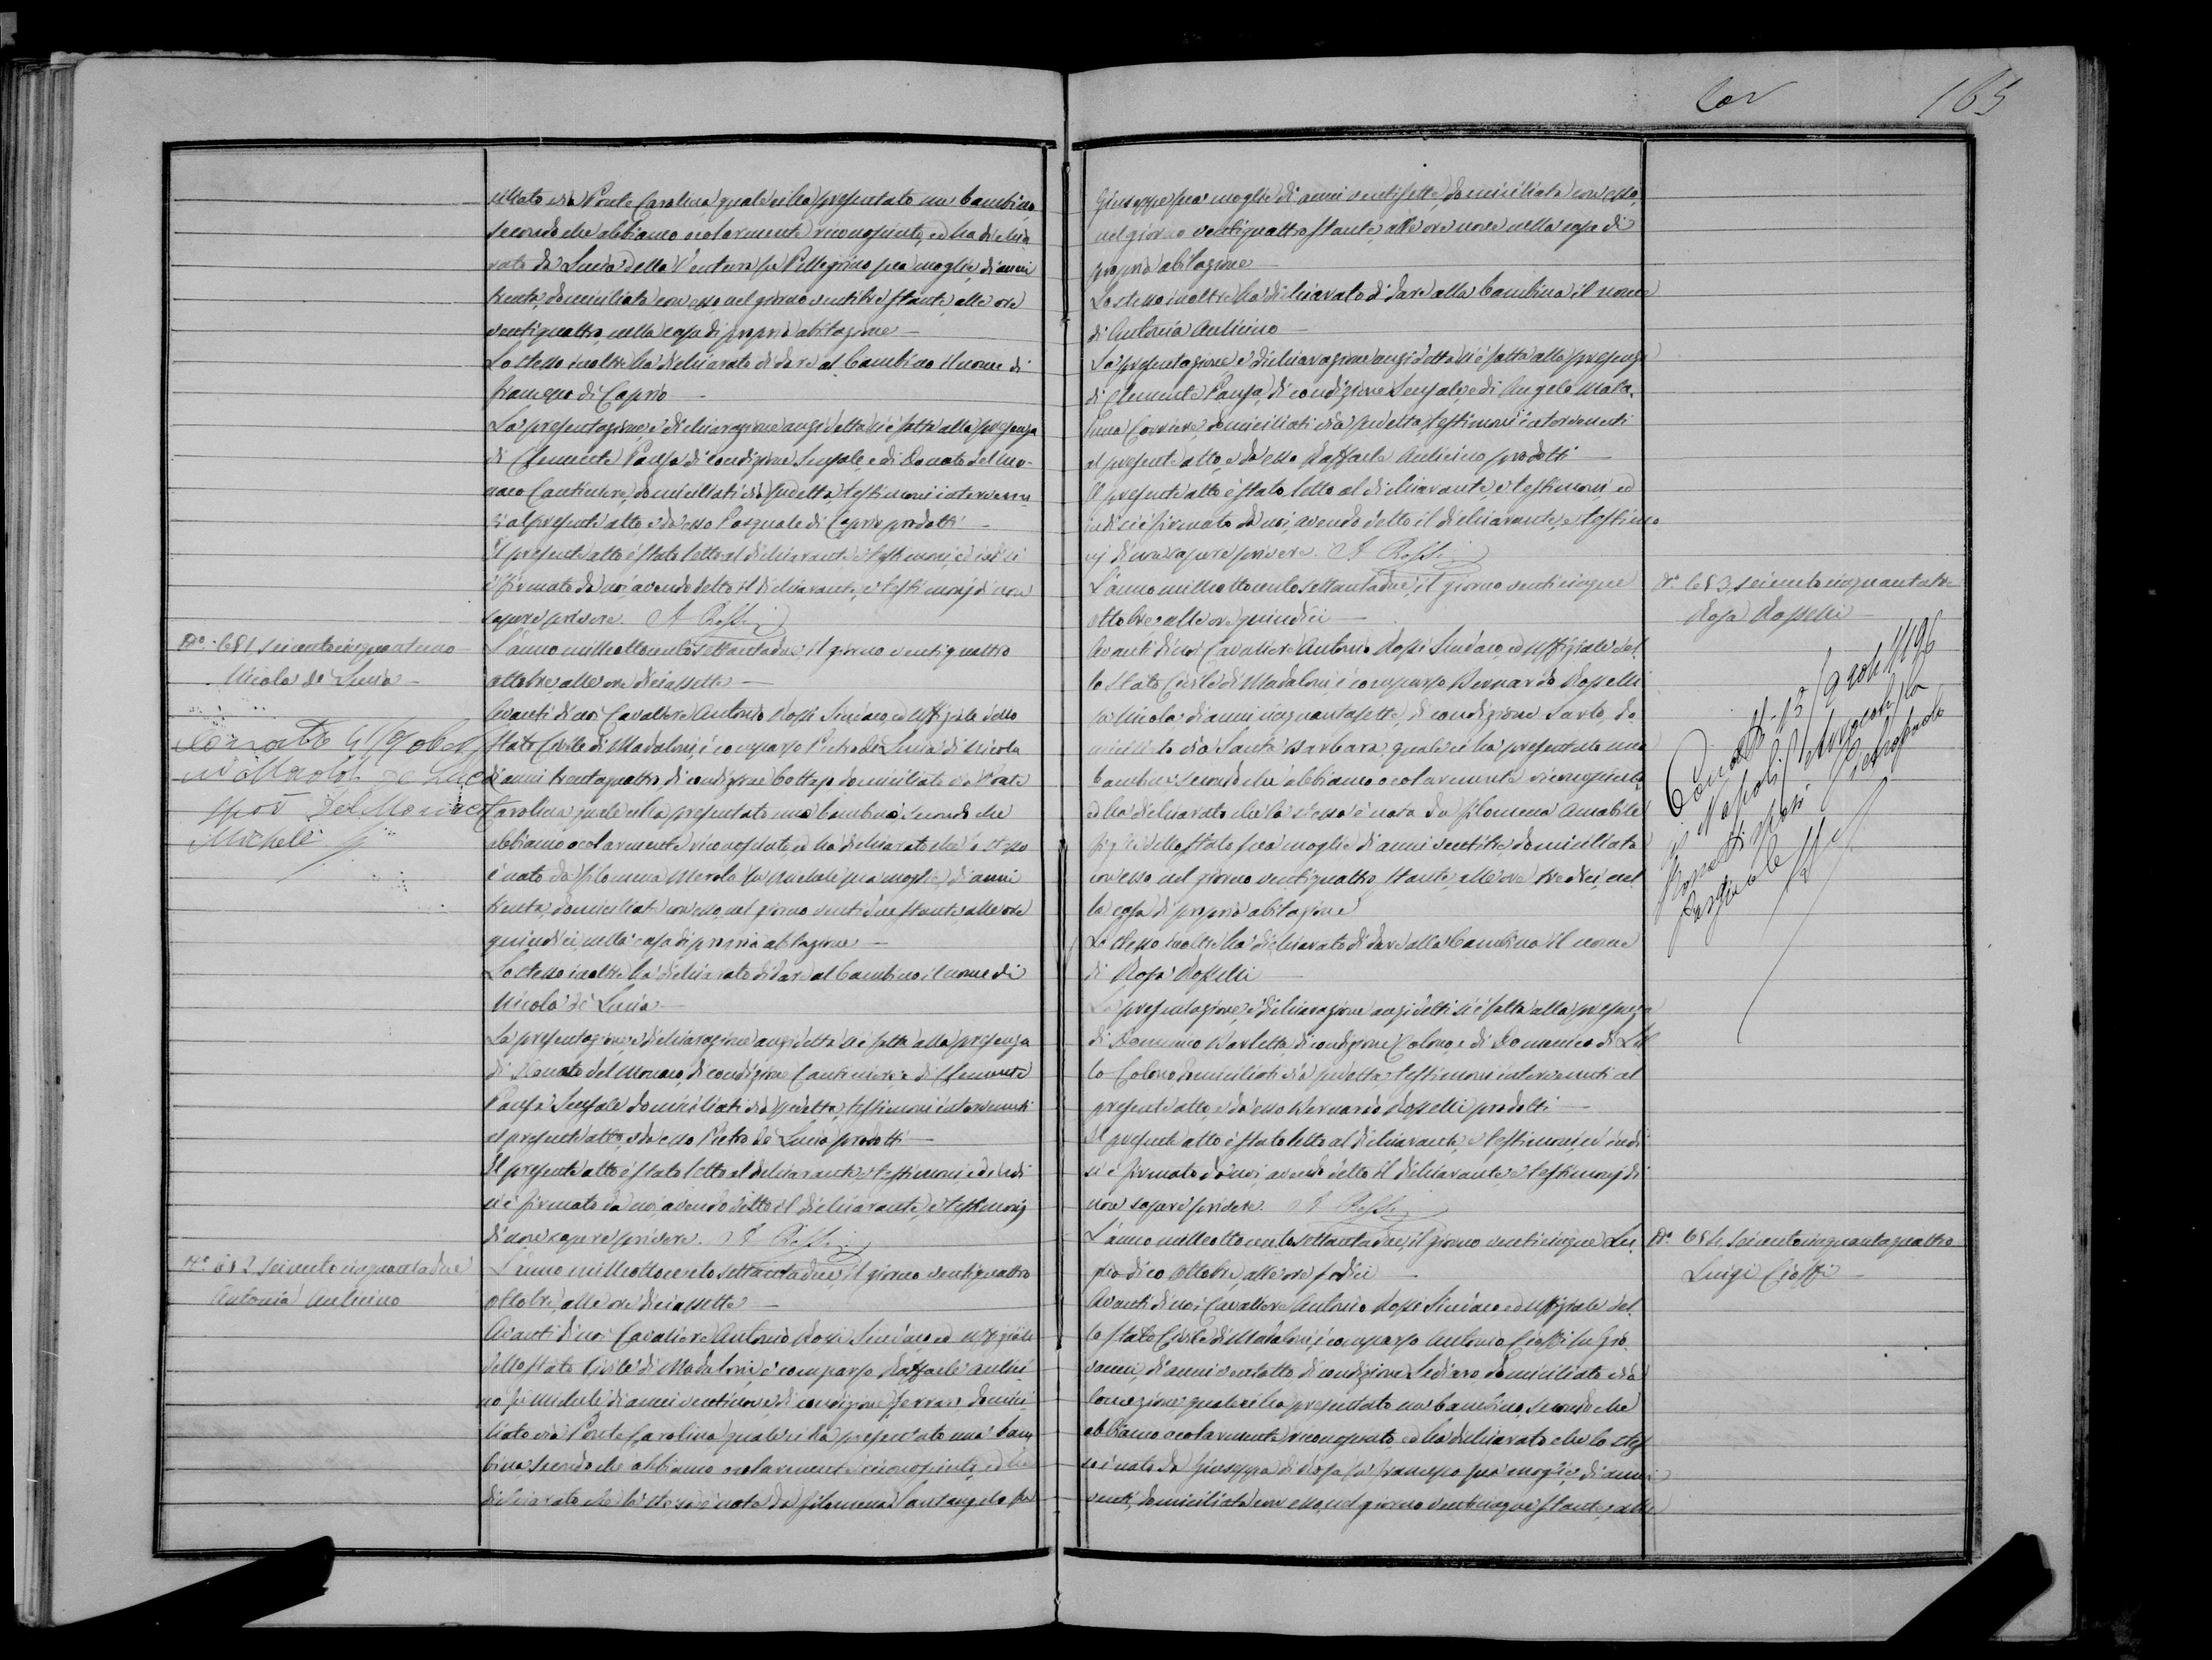 165
ciliato via Ponte Carolina quale ci ha presentato un bambino
secondo che abbiamo ocolarmente riconosciuto, ed ha dichia
rato da Lucia della Ventura fu Pellegrino sua moglie di anni
trenta, domiciliata con esso nel giorno ventitre stante, alle ore
ventiquattro, nella casa di propria abitazione
Lo stesso inoltre ha dichiarato di dare al bambino il nome di
Francesco di Caprio
La presentazione, e dichiarazione anzidetta si è fatta alla presenza
di Clemente Pansa di condizione Sensale, e di Donato del Mo-
naco Cantiniere, domiciliati via sudetta, testimoni intervenu
ti al presente atto, e da esso Pasquale di Caprio prodotti
Il presente atto è stato letto al dichiarante, e testimoni, e indi si
è firmato da noi avendo detto il dichiarante, e testimonj di non
sapere scrivere. A Rossi
N.º 651 seicentocinquantuno
Nicola de Lucia
L'anno milleottocentosettantadue, il giorno ventiquattro
ottobre, alle ore diciassette
Avanti di noi Cavaliere Antonio Rossi Sindaco, ed Uffiziale dello
Stato Civile di Madaloni, è comparso Pietro de Lucia di Nicola
di anni trentaquattro, di condizione bottajo domiciliato via Ponte
Carolina, quale ci ha presentato uno bambino, secondo che
abbiamo ocolarmente riconosciuto, ed ha dichiarato che lo stesso
è nato da Filomena Merola fu Michele sua moglie, di anni
trenta, domiciliata con esso, nel giorno ventidue stante, alle ore
quindici, nella casa di propria abitazione
Lo stesso inoltre ha dichiarato di dare al bambino, il nome di
Nicola de Lucia
La presentazione, e dichiarazione anzidetta si è fatta alla presenza
di Donato del Monaco, di condizione Cantiniere, e di Clemente
Pansa Sensale domiciliati via sudetta, testimoni intervenuti
al presente atto, e da esso Pietro de Lucia prodotti
Il presente atto è stato letto al dichiarante, e testimoni, ed indi
si è firmato da noi, avendo detto il dichiarante, e testimonj
di non sapere scrivere. A Rossi
N.º 652 seicentocinquantadue
Antonia Aulicino
L'anno milleottocentosettantadue, il giorno ventiquattro
ottobre, alle ore diciassette
Avanti di noi Cavaliere Antonio Rossi Sindaco, ed Uffiziale
dello Stato Civile di Madaloni, è comparso Raffaele Aulici
no fu Michele di anni ventinove, di condizione ferraro, domici
liato via Ponte Carolina, quale ci ha presentato una bam
bina secondo che abbiamo ocolarmente riconosciuta, ed ha
dichiarato che la stessa è nata da Filomena Santangelo fu
Giuseppe sua moglie di anni ventisette, domiciliata con esso,
nel giorno ventiquattro stante, alle ore nove nella casa di
propria abitazione
Lo stesso inoltre ha dichiarato di dare alla bambina il nome
di Antonia Aulicino
La presentazione, e dichiarazione anzidetta si è fatta alla presenza
di Clemente Pansa, di condizione Sensale, e di Angelo
Corriere, domiciliati via sudetta, testimoni intervenuti
al presente atto, e da esso Raffaele Aulicino prodotti
Il presente atto è stato letto al dichiarante, e testimoni, ed
indi si è firmato da noi, avendo detto il dichiarante, e testimo
nj di non sapere scrivere. A Rossi
N.º 653 seicentocinquantatre
Rosa Rosselli
L'anno milleottocentosettantadue, il giorno venticinque
ottobre, alle ore quindici
Avanti di noi Cavaliere Antonio Rossi Sindaco, ed Uffiziale del
lo Stato Civile di Madaloni, è comparso Bernardo Rosselli
fu Nicola di anni cinquantasette, di condizione Sarto, do
miciliato via Santa Barbara, quale ci ha presentato una
bambina, secondo che abbiamo ocolarmente riconosciuta
ed ha dichiarato che la stessa è nata da Filomena Amabile
figlia dello stato sua moglie di anni ventitre, domiciliata
con esso nel giorno ventiquattro stante, alle ore tredici, nel
la casa di propria abitazione
Lo stesso inoltre ha dichiarato di dare alla bambina il nome
di Rosa Rosselli
La presentazione, e dichiarazione anzidetti si è fatta alla presenza
di Domenico Barletta, di condizione Colono, e di Domenico di Lil
lo Colono, domiciliati via sudetta, testimoni intervenuti al
presente atto, e da esso Bernardo Rosselli prodotti
Il presente atto è stato letto al dichiarante, e testimoni, e indi
si è firmato da noi, avendo detto il dichiarante, e testimonj di
non sapere scrivere. A Rossi
N.º 654 seicentocinquantaquattro
Luigi Cioffi
L'anno milleottocentosettantadue, il giorno venticinque Lu
glio dico ottobre, alle ore sedici
Avanti di noi Cavaliere Antonio Rossi Sindaco, ed Uffiziale del
lo Stato Civile di Madaloni, è comparso Antonio Cioffi fu Gio
vanni, di anni ventotto, di condizione Sediaro, domiciliato via
Concezione quale ci ha presentato un bambino, secondo che
abbiamo ocolarmente riconosciuto, ed ha dichiarato che lo stes
so è nato da Giuseppa di Rosa fu Francesco sua moglie, di anni
venti, domiciliata con esso, nel giorno venticinque stante, alle